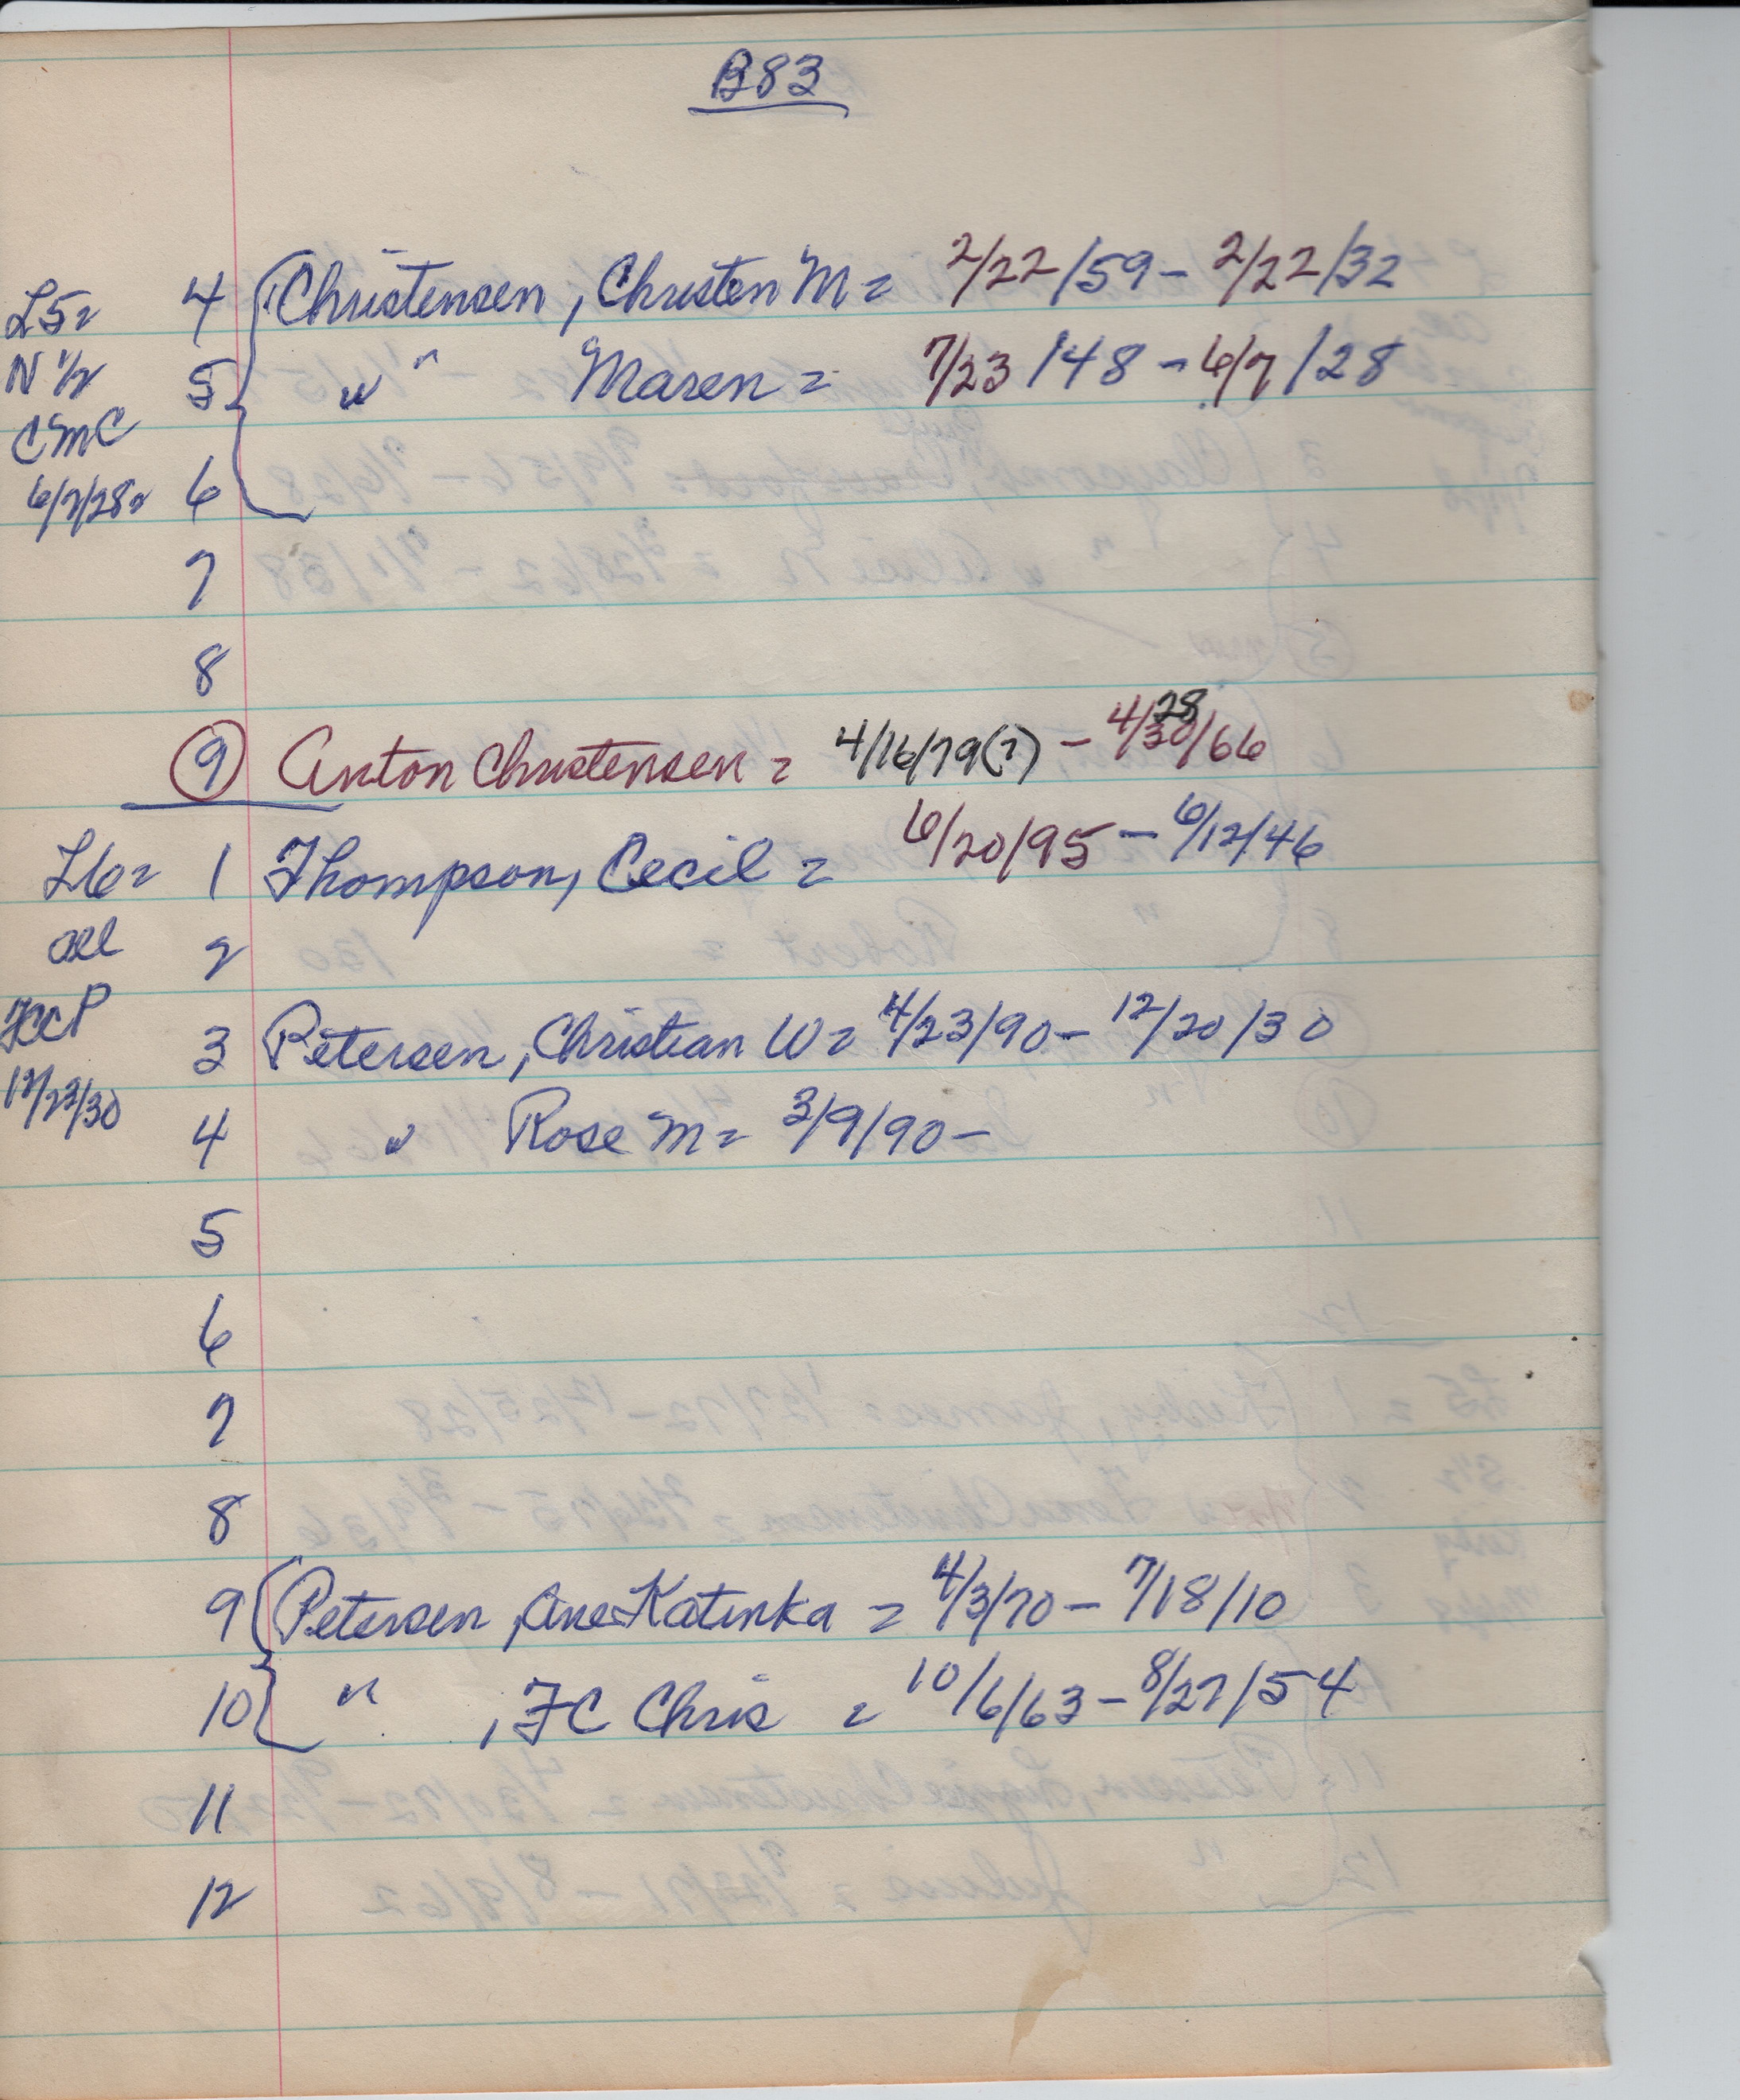 B83
L5= 4 Christensen, Christen M = 2/22/59 - 2/22/32
N 1/2 5 " " Maren = 7/23/48 - 6/7/28
CMC
6/7/28= 6
7
8
9 Anton Christensen = 4/16/79(?) - 4/30/66
28
L6= 1 Thompson, Cecil = 6/20/95 - 6/12/46
all 2
FCCP 3 Petersen, Christian W = 4/23/90 - 12/20/30
12/23/30 4 " Rose M = 3/9/90 -
5
6
7
8
9 Petersen, Ane Katinka = 4/3/70 - 7/18/10
10 " , FC Chris = 10/6/63 - 8/27/54
11
12